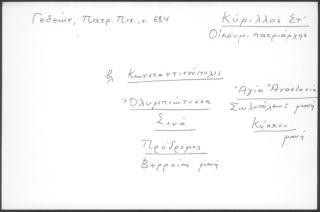 Γεδεών, Πατρ. Πιν., σ. 684
Κύριλλος Στ'
Οἰκουμ. πατριάρχης
Κωνσταντινούπολις
Ὀλυμπιώτισσα
Σινᾶ
Πρόδρομος
Βερροίας μονή
Ἁγία Ἀναστασία
Σωζοπόλεως μονή
Κύκκου
μονή